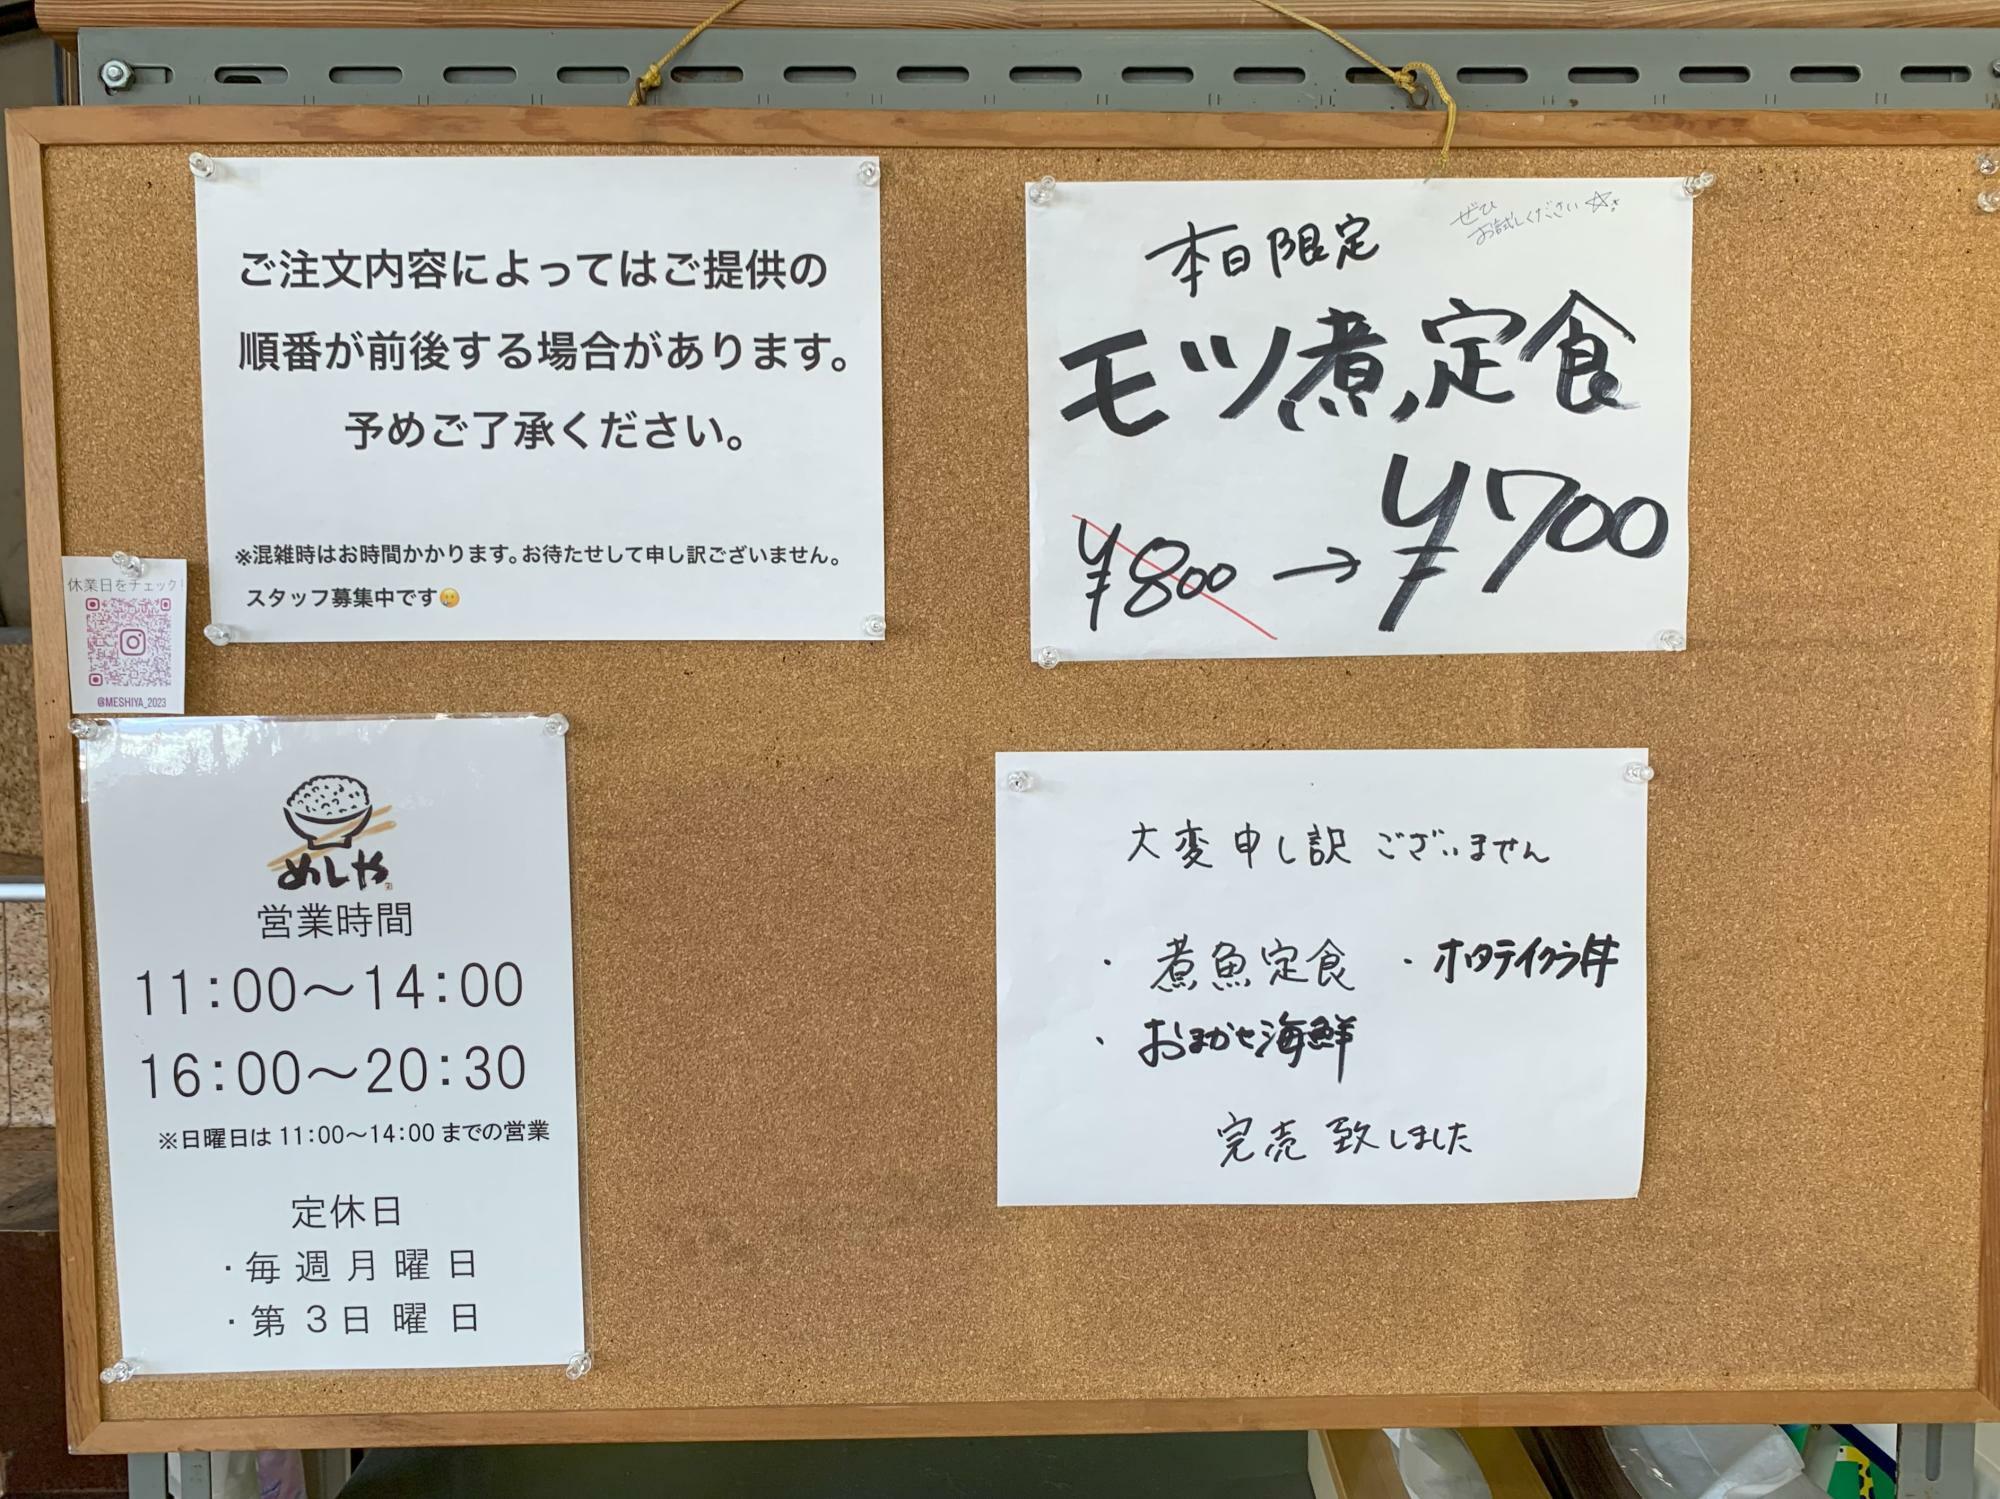 ご注文内容によってはご提供の
順番が前後する場合があります。
予めご了承ください。
※混雑時はお時間かかります。お待たせして申し訳ございません。
スタッフ募集中です🥲
本日限定
ぜひ
お試しください☆!
モツ煮定食
¥800→¥700
休業日をチェック!
@MESHIYA_2023
めしや
営業時間
11:00～14:00
16:00～20:30
※日曜日は11:00～14:00までの営業
定休日
・毎週月曜日
・第3日曜日
大変申し訳ございません
・煮魚定食 ・ホタテイクラ丼
・おまかせ海鮮
完売致しました